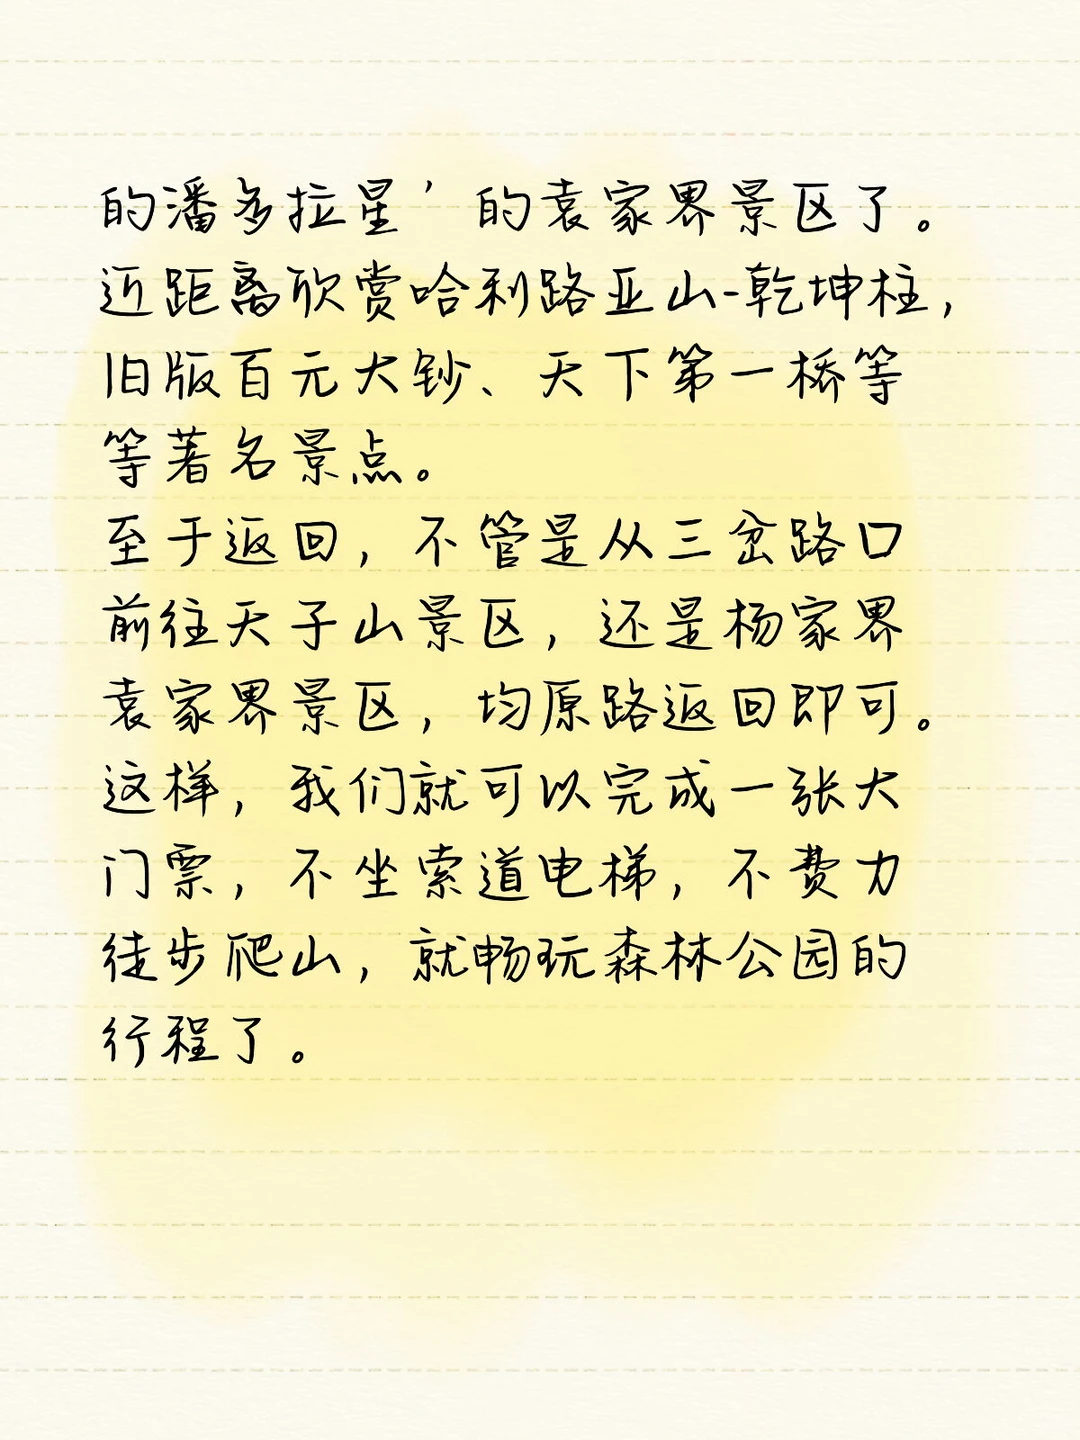 的潘多拉星’的袁家界景区了。
近距离欣赏哈利路亚山-乾坤柱，
旧版百元大钞、天下第一桥等
等著名景点。
至于返回，不管是从三岔路口
前往天子山景区，还是杨家界
袁家界景区，均原路返回即可。
这样，我们就可以完成一张大
门票，不坐索道电梯，不费力
徒步爬山，就畅玩森林公园的
行程了。